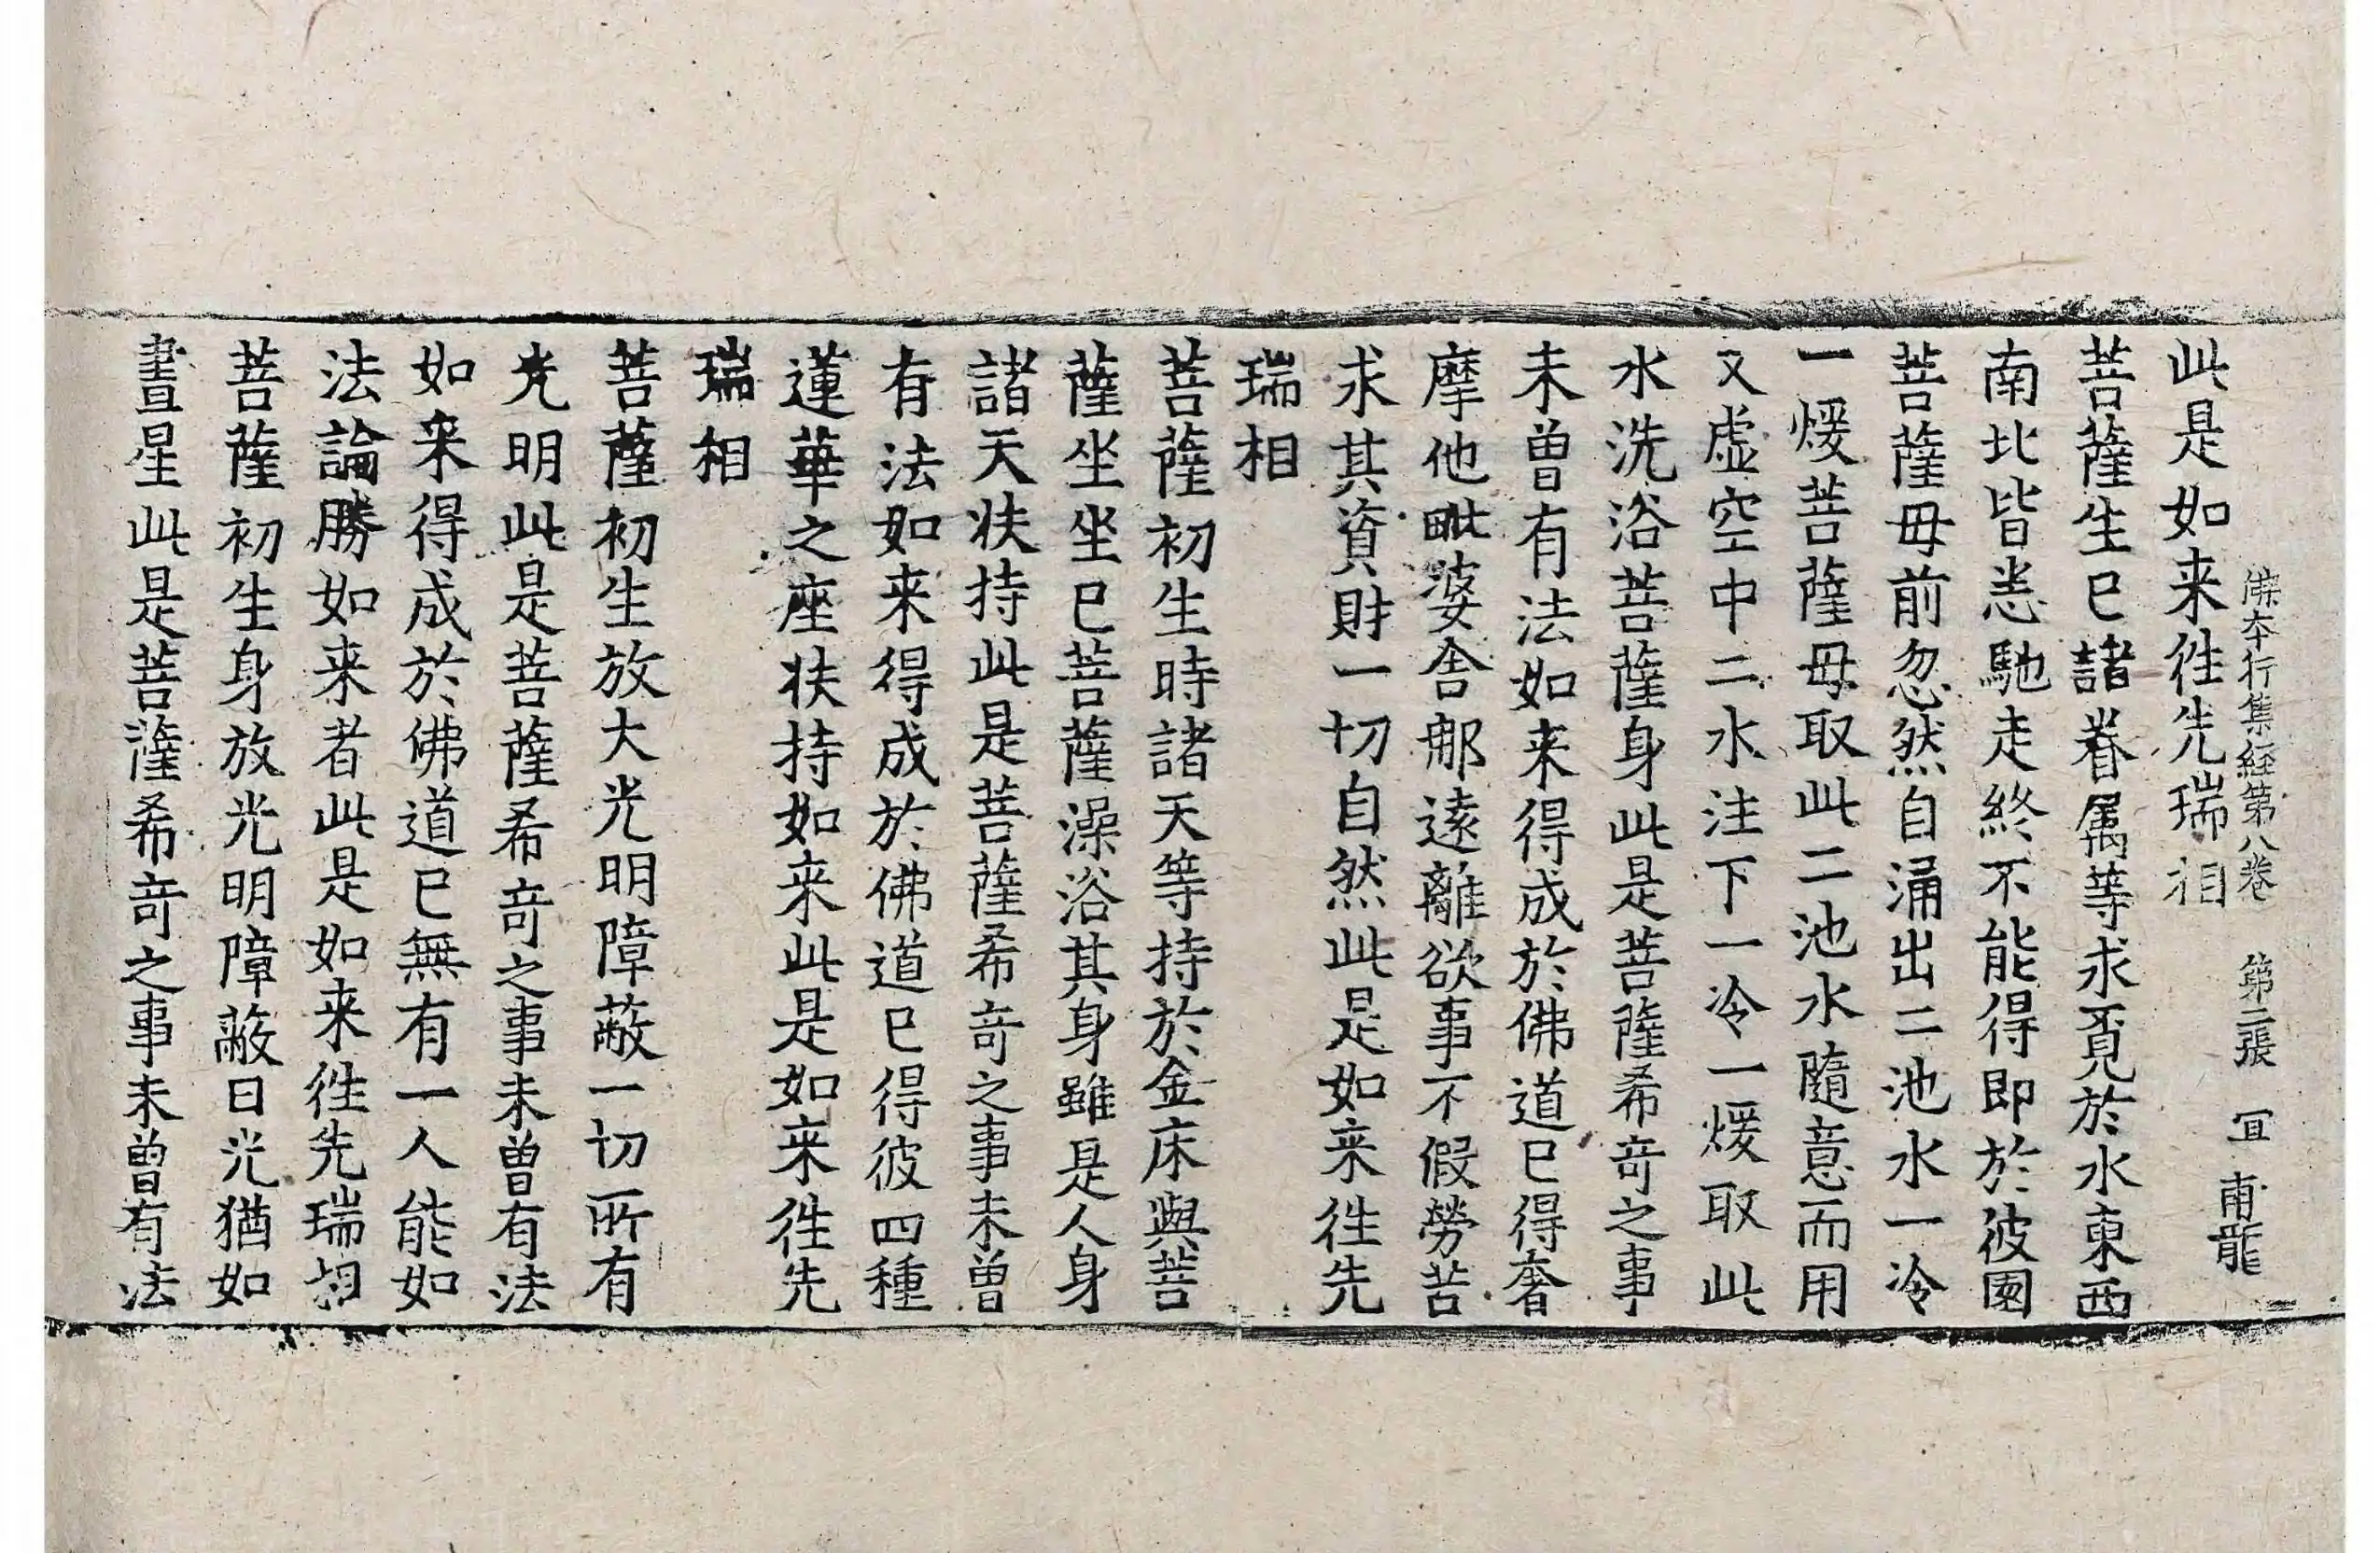 佛本行集経第八卷　第二張　冝　甫龍
此是如来徃先瑞相
菩薩生已諸眷属等求覓於水東西
南北皆悉馳走終不能得即於彼園
菩薩母前忽然自涌出二池水一冷
一煖菩薩母取此二池水隨意而用
又虚空中二水注下一冷一煖取此
水洗浴菩薩身此是菩薩希竒之事
未曽有法如来得成於佛道已得奢
摩他毗婆舎那遠離欲事不假勞苦
求其資財一切自然此是如来徃先
瑞相
菩薩初生時諸天等持於金床與菩
薩坐坐已菩薩澡浴其身雖是人身
諸天扶持此是菩薩希竒之事未曽
有法如来得成於佛道已得彼四種
蓮華之座扶持如来此是如来徃先
瑞相
菩薩初生放大光明障蔽一切所有
光明此是菩薩希竒之事未曽有法
如来得成於佛道已無有一人能如
法論勝如来者此是如来徃先瑞相
菩薩初生身放光明障蔽日光猶如
晝星此是菩薩希竒之事未曽有法